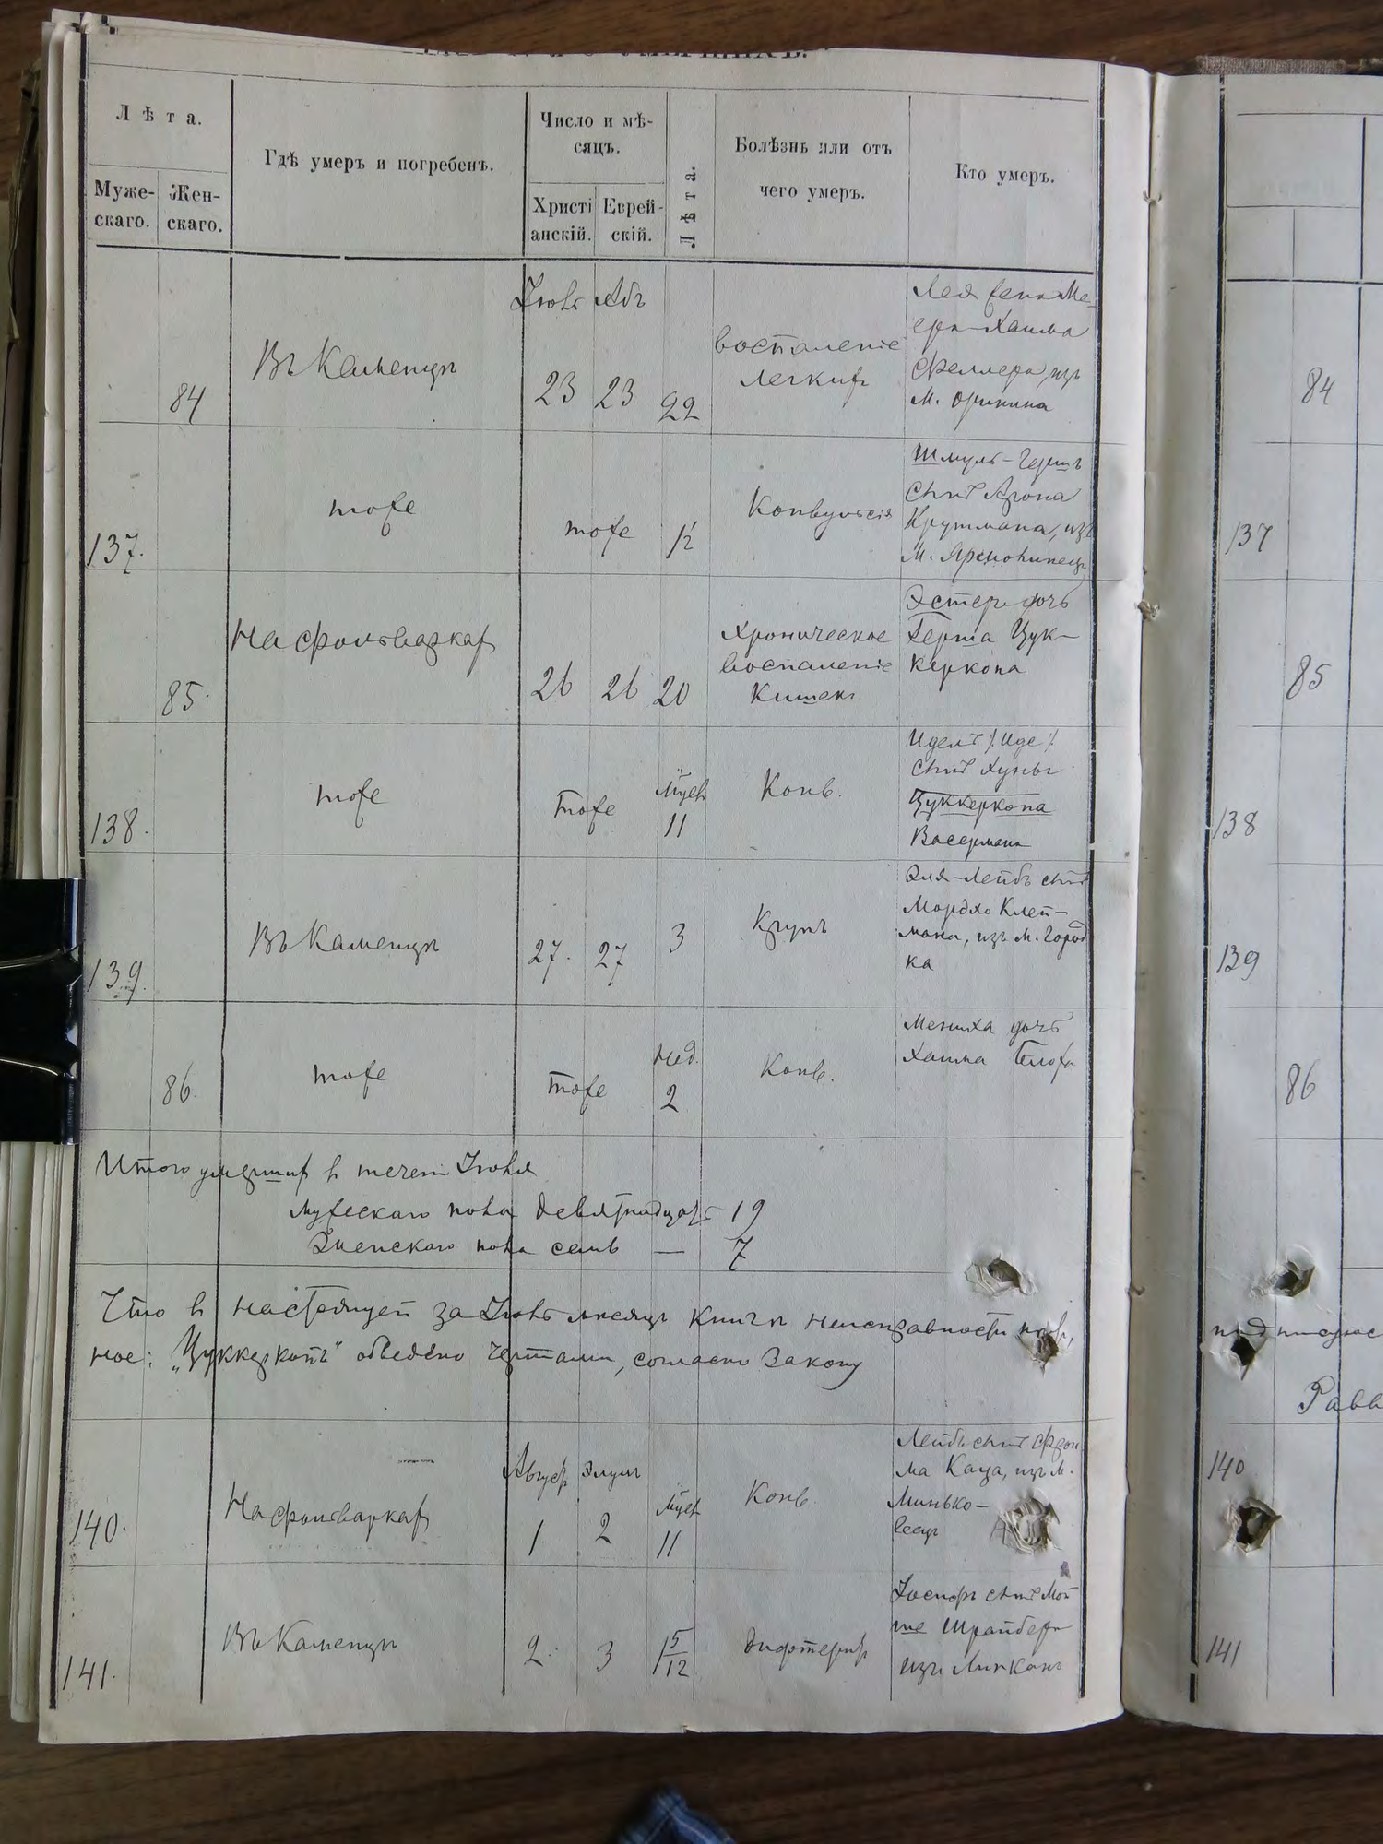 Лѣта.
Муже-
скаго.
Жен-
скаго.
Гдѣ умеръ и погребенъ.
Число и мѣ-
сяцъ.
Христі
анскій.
Еврей-
скій.
Лѣта.
Болѣзнь или отъ
чего умеръ.
Кто умеръ.
84
Въ Каменцѣ
Іюль Абъ
23 23 22
воспаленіе
легкихъ
Лея жена Ме-
ера-Хаима
изъ
м. Оринина
84
137.
тоже
тоже
½
Конвульсія
Шмуль-Гершъ
сынъ Арона
Крутмана, изъ
м. Ярмолинецъ
137
85.
На фольваркахъ
26 26 20
Хроническое
воспаленіе
кишекъ
Эстеръ дочь
Герша Цук-
керкопа
85
138.
тоже
тоже
мѣсяц.
11
Конв.
Идель /Иде/
сынъ
Цуккеркопа
Васермана
138
139.
Въ Каменцѣ
27. 27 3
Крупъ
Эля-Лейбъ сынъ
Мордко Клей-
мана, изъ м. Город
ка
139
86.
тоже
тоже
Нед.
2
Конв.
Мениха дочь
Хаима
86
Итого умершихъ въ теченіи Іюля
Мужескаго пола девятнадцать 19
Женскаго пола семь — 7
Что въ настоящей за Іюль мѣсяцъ книгѣ неисправности
ное: „Цуккеркопъ" обведено чертами, согласно закону
Равв
140.
На фольваркахъ
Август Элулъ
1 2
мѣсяц.
11
Конв.
Лейбъ сынъ
ма Каца, изъ м.
Минько-
вецъ
140
141.
Въ Каменцѣ
2. 3 5/12
Дифтеритъ
Іосифъ сынъ Мой
ше Шрайбера
изъ Липканъ
141